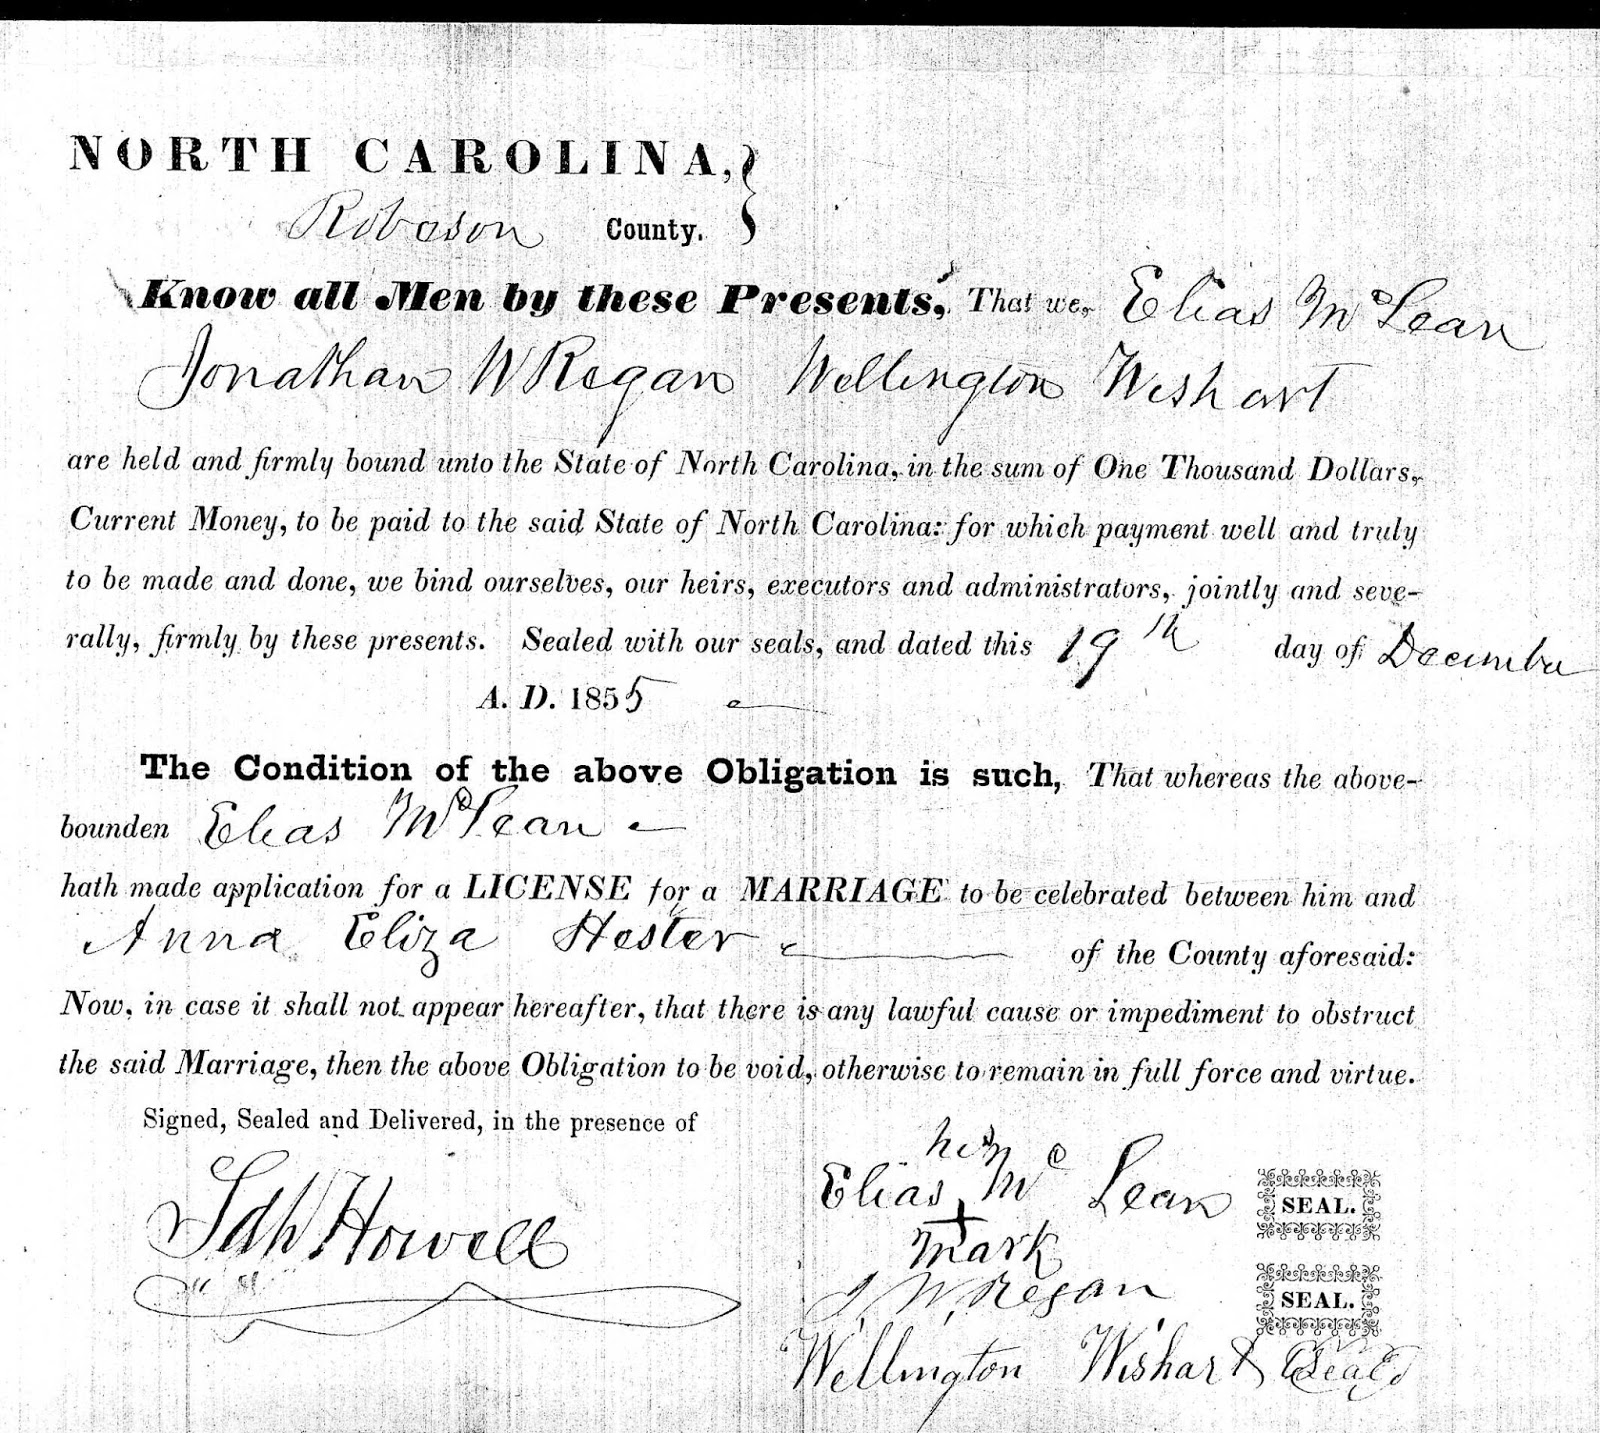 NORTH CAROLINA,
Robeson County.
Know all Men by these Presents, That we, Elias Mc Lean
Jonathan W Regan Wellington Wishart
are held and firmly bound unto the State of North Carolina, in the sum of One Thousand Dollars,
Current Money, to be paid to the said State of North Carolina: for which payment well and truly
to be made and done, we bind ourselves, our heirs, executors and administrators, jointly and seve-
rally, firmly by these presents. Sealed with our seals, and dated this 19th day of December
A. D. 1855
The Condition of the above Obligation is such, That whereas the above-
bounden Elias McLean
hath made application for a LICENSE for a MARRIAGE to be celebrated between him and
Anna Eliza Hester of the County aforesaid:
Now, in case it shall not appear hereafter, that there is any lawful cause or impediment to obstruct
the said Marriage, then the above Obligation to be void, otherwise to remain in full force and virtue.
Signed, Sealed and Delivered, in the presence of
his
Elias Mc Lean SEAL.
mark
Howell
J. W. Regan SEAL.
Wellington Wishart Seal